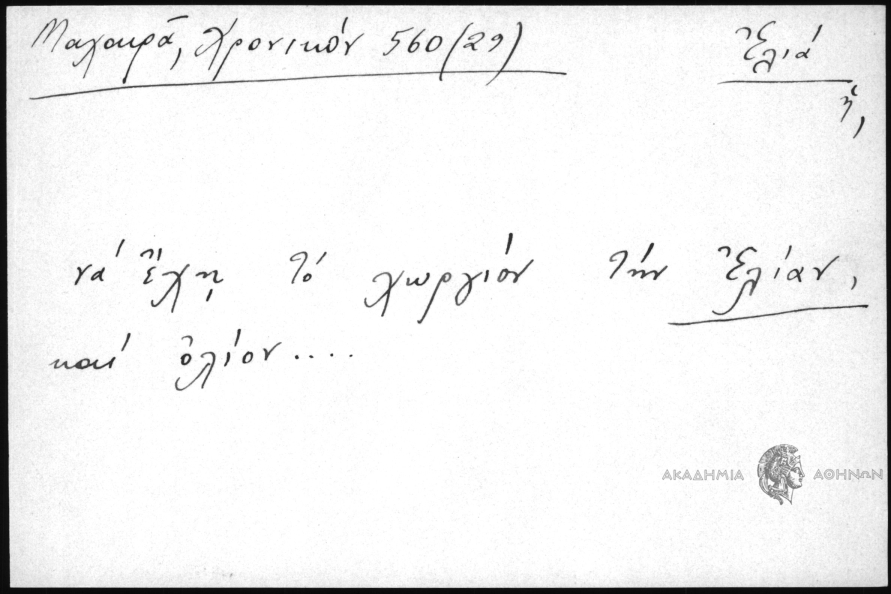 Μαχαιρᾶ, Χρονικόν 560 (29)
Ἐλιά
ἡ,
νά ἔχῃ τό χωργιόν τήν Ἐλίαν,
καί ὅλλον....
ΑΚΑΔΗΜΙΑ ΑΘΗΝΩΝ